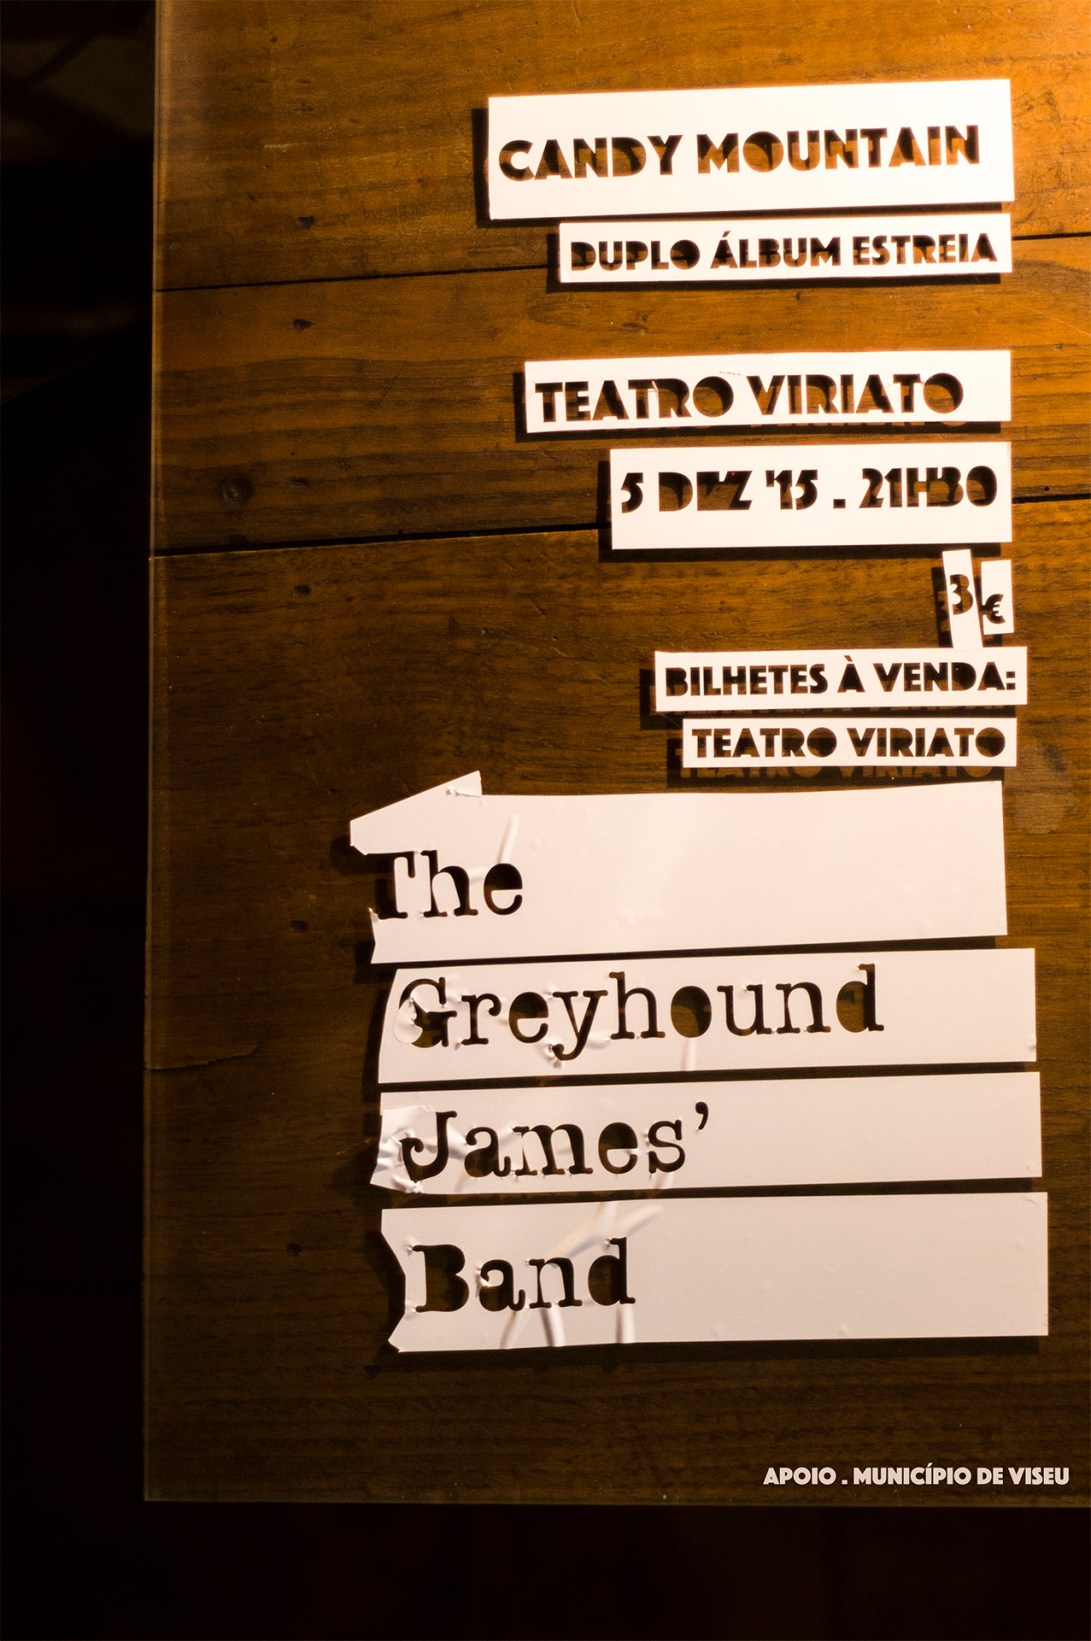 CANDY MOUNTAIN
DUPLO ÁLBUM ESTREIA
TEATRO VIRIATO
5 DEZ '15 . 21H30
3€
BILHETES À VENDA:
TEATRO VIRIATO
The
Greyhound
James’
Band
APOIO . MUNICÍPIO DE VISEU